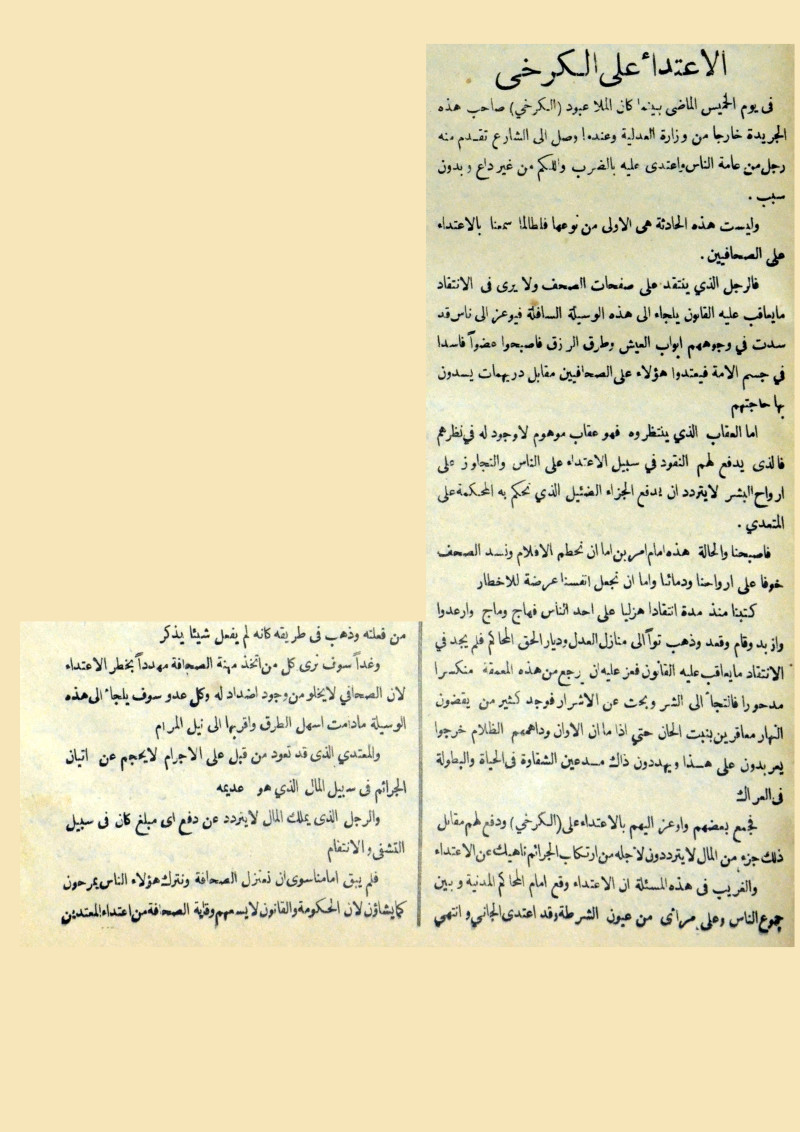 الاعتداء على الكرخي
فى يوم الخميس الماضى بينما كان الملا عبود (الكرخي) صاحب هذه
الجريدة خارجا من وزارة العدلية وعندما وصل الى الشارع تقدم منه
رجل من عامة الناس واعتدى عليه بالضرب واللكم من غير داع وبدون
سبب .
وليست هذه الحادثة هى الاولى من نوعها فلطالما سمعنا بالاعتداء
على الصحافيين .
فالرجل الذي ينتقد على صفحات الصحف ولا يرى فى الانتقاد
مايعاقب عليه القانون يلجاء الى هذه الوسيلة السافلة فيوعز الى ناس قد
سدت في وجوههم ابواب العيش وطرق الرزق فاصبحوا عضواً فاسدا
في جسم الامة فيعتدوا هؤلاء على الصحافيين مقابل دريهمات يسدون
بها حاجتهم
اما العقاب الذي ينتظروه فهو عقاب موهوم لاوجود له في نظرهم
فالذى يدفع لهم النقود في سبيل الاعتداء على الناس والتجاوز على
ارواح البشر لايتردد ان يدفع الجزاء الضئيل الذي تحكم به المحكمة على
المتعدي .
فاصبحنا والحالة هذه امام امرين اما ان نحطم الاقلام ونسد الصحف
خوفا على ارواحنا ودمائنا واما ان نجعل انفسنا عرضة للاخطار
كتبنا منذ مدة انتقادا هزليا على احد الناس فهاج وماج وارعدوا
وازبد وقام وقعد وذهب تواً الى منازل العدل وديار الحق المحاكم فلم يجد في
الانتقاد مايعاقب عليه القانون فعز عليه ان يرجع من هذه المعمقة منكسرا
مدحورا فالتجأ الى الشر وبحث عن الاشرار فوجد كثير من يقضون
النهار معاقرين بنبت الحان حتي اذا ما ان الاوان وداهمهم الظلام خرجوا
يعربدون على هذا ويهددون ذاك مدعين الشقاوة فى الحياة والبطولة
فى العراك
فجمع بعضهم واوعز اليهم بالاعتداء على (الكرخي) ودفع لهم مقابل
ذلك جزء من المال لايترددون لاجله من ارتكاب الجرائم ناهيك عن الاعتداء
والغريب فى هذه المسئلة ان الاعتداء وقع امام المحاكم المدنية وبين
جموع الناس وعلى مرآى من عيون الشرطة وقد اعتدى الجاني وانتهي
من فعلته وذهب فى طريقه كانه لم يفعل شيئا يذكر
وغداً سوف نرى كل من اتخذ مهنة الصحافة مهدداً بخطر الاعتداء
لان الصحافي لايخلو من وجود اضداد له وكل عدو سوف يلجاء الى هذه
الوسيلة مادامت اسهل الطرق واقربها الى نيل المرام
والمعتدي الذى قد تعود من قبل على الاجرام لايحجم عن اتيان
الجرائم فى سبيل المال الذي هو عديمه
والرجل الذى يملك المال لايتردد عن دفع اى مبلغ كان فى سبيل
التشفى والانتقام
فلم يبق امامنا سوى ان نعتزل الصحافة ونترك هؤلاء الناس يمرحون
كما يشاؤن لان الحكومة والقانون لايسعهم وقاية الصحافة من اعتداء المعتدين